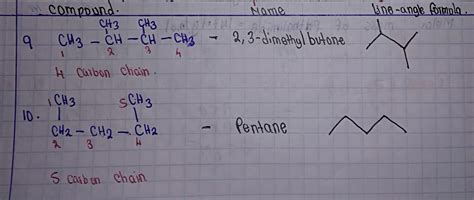 compound. Name line-angle formula.
CH3 CH3
9 CH3 - CH - CH - CH3 - 2,3-dimethyl butane
1 2 3 4
4 Carbon chain.
1CH3 5CH3
10. CH2 - CH2 - CH2 - Pentane
2 3 4
5 carbon chain